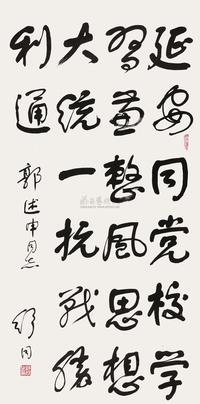 延安同党校学
習整風思想
大統一抗戰勝
利通
郭述申同志
舒同